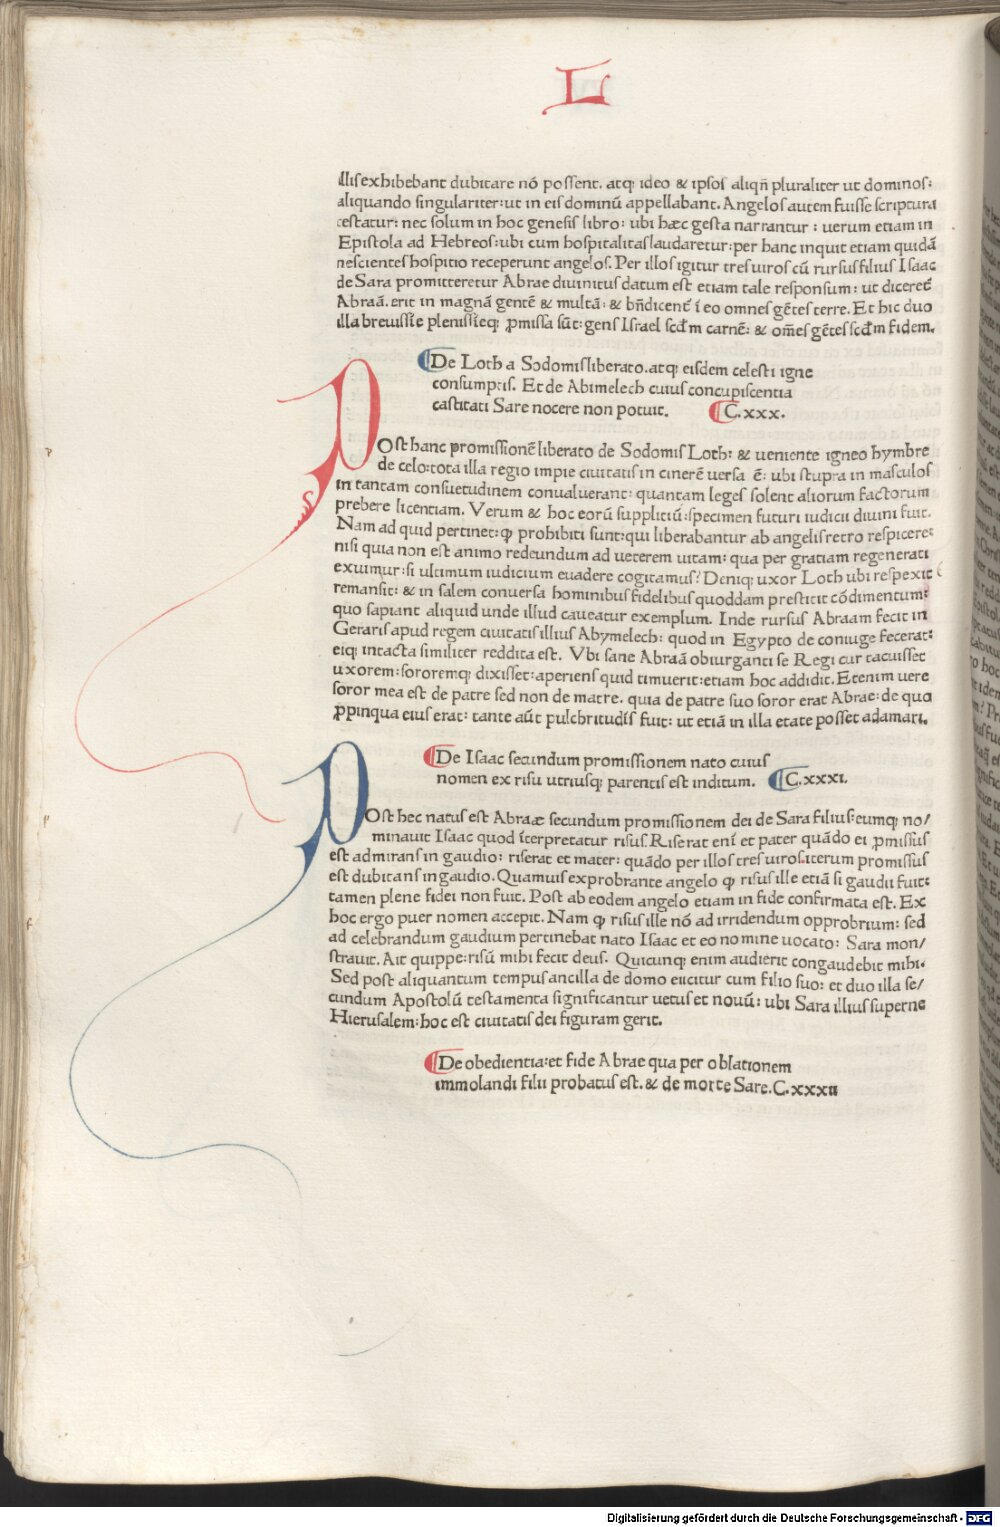 L
illis exhibebant dubitare nō possent. atq; ideo & ipsos aliqn̄ pluraliter ut dominos:
aliquando singulariter: ut in eis dominū appellabant. Angelos autem fuisse scriptura
testatur: nec solum in hoc genesis libro: ubi hæc gesta narrantur: uerum etiam in
Epistola ad Hebreos: ubi cum hospitalitas laudaretur: per hanc inquit etiam quidā
nescientes hospitio receperunt angelos. Per illos igitur tres uiros cū rursus filius Isaac
de Sara promitteretur Abrae diuinitus datum est etiam tale responsum: ut diceret̄
Abraā. erit in magnā gentē & multā: & bn̄dicent̄ ī eo omnes gētes terre. Et hic duo
illa breuissīe plenissīeq; ꝓmissa sūt: gens Israel scđm carnē: & om̄es gētes scđm fidem.
De Loth a Sodomis liberato. atq; eisdem celesti igne
consumptis. Et de Abimelech cuius concupiscentia
castitati Sare nocere non potuit. C. xxx.
POst hanc promissionē liberato de Sodomis Loth: & ueniente igneo hymbre
de celo: tota illa regio impie ciuitatis in cinerē uersa ē: ubi stupra in masculos
in tantam consuetudinem conualuerant: quantam leges solent aliorum factorum
prebere licentiam. Verum & hoc eorū suppliciū: specimen futuri iudicii diuini fuit.
Nam ad quid pertinet: ꝙ prohibiti sunt: qui liberabantur ab angelis retro respicere:
nisi quia non est animo redeundum ad ueterem uitam: qua per gratiam regenerati
exuimur: si ultimum iudicium euadere cogitamus? Deniq; uxor Loth ubi respexit
remansit: & in salem conuersa hominibus fidelibus quoddam prestitit cōdimentum:
quo sapiant aliquid unde illud caueatur exemplum. Inde rursus Abraam fecit in
Geraris apud regem ciuitatis illius Abymelech: quod in Egypto de coniuge fecerat:
eiq; intacta similiter reddita est. Vbi sane Abraā obiurganti se Regi cur tacuisset
uxorem: sororemq; dixisset: aperiens quid timuerit: etiam hoc addidit. Etenim uere
soror mea est de patre sed non de matre. quia de patre suo soror erat Abrae: de quo
ꝓpinqua eius erat: tante aūt pulchritudīs fuit: ut etiā in illa etate posset adamari.
De Isaac secundum promissionem nato cuius
nomen ex risu utriusq; parentis est inditum. C. xxxi.
POst hec natus est Abraæ secundum promissionem dei de Sara filius: eumq; no/
minauit Isaac quod īterpretatur risus. Riserat enī et pater quādo ei ꝓmissus
est admirans in gaudio: riserat et mater: quādo per illos tres uiros iterum promissus
est dubitans in gaudio. Quamuis exprobrante angelo ꝙ risus ille etiā si gaudii fuit:
tamen plene fidei non fuit. Post ab eodem angelo etiam in fide confirmata est. Ex
hoc ergo puer nomen accepit. Nam ꝙ risus ille nō ad irridendum opprobrium: sed
ad celebrandum gaudium pertinebat nato Isaac et eo nomine uocato: Sara mon/
strauit. Ait quippe: risū mihi fecit deus. Quicunq; enim audierit congaudebit mihi.
Sed post aliquantum tempus ancilla de domo eiicitur cum filio suo: et duo illa se/
cundum Apostolū testamenta significantur uetus et nouū: ubi Sara illius superne
Hierusalem: hoc est ciuitatis dei figuram gerit.
De obedientia: et fide Abrae qua per oblationem
immolandi filii probatus est. & de morte Sare. C. xxxii
Digitalisierung gefördert durch die Deutsche Forschungsgemeinschaft - DFG